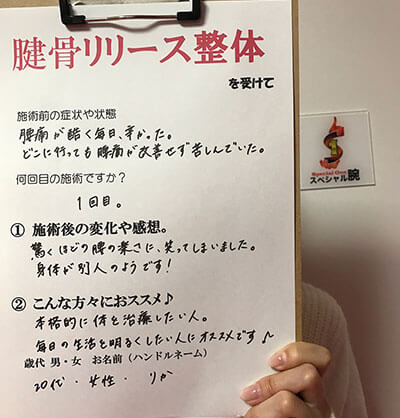 腱骨リリース整体
を受けて
施術前の症状や状態
腰痛が酷く毎日、辛かった。
どこに行っても腰痛が改善せず苦しんでいた。
何回目の施術ですか?
1回目。
① 施術後の変化や感想。
驚くほどの腰の楽さに、笑ってしまいました。
身体が別人のようです!
② こんな方々におススメ♪
本格的に体を治療したい人。
毎日の生活を明るくしたい人にオススメです♪
歳代 男・女 お名前(ハンドルネーム)
20代・女性・りか
Special One
スペシャル腕